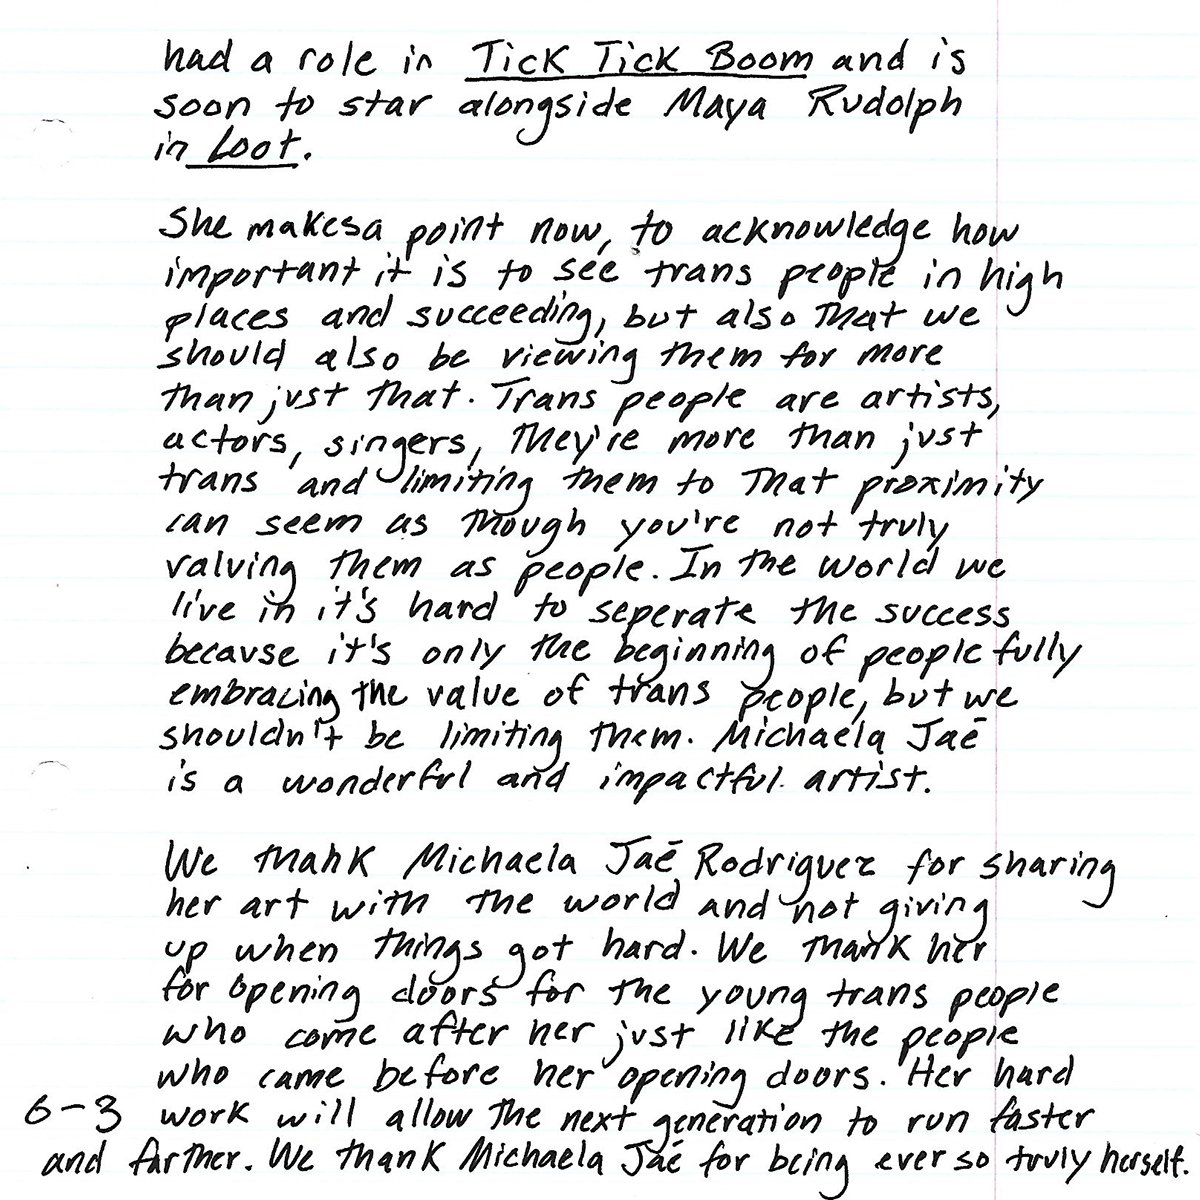 had a role in Tick Tick Boom and is
soon to star alongside Maya Rudolph
in Loot.
She makes a point now, to acknowledge how
important it is to see trans people in high
places and succeeding, but also that we
should also be viewing them for more
than just that. Trans people are artists,
actors, singers, they're more than just
trans and limiting them to that proximity
can seem as though you're not truly
valuing them as people. In the world we
live in it's hard to seperate the success
because it's only the beginning of people fully
embracing the value of trans people, but we
shouldn't be limiting them. Michaela Jaé
is a wonderful and impactful artist.
We thank Michaela Jaé Rodriguez for sharing
her art with the world and not giving
up when things got hard. We thank her
for opening doors for the young trans people
who come after her just like the people
who came before her opening doors. Her hard
6-3 work will allow the next generation to run faster
and farther. We thank Michaela Jaé for being ever so truly herself.